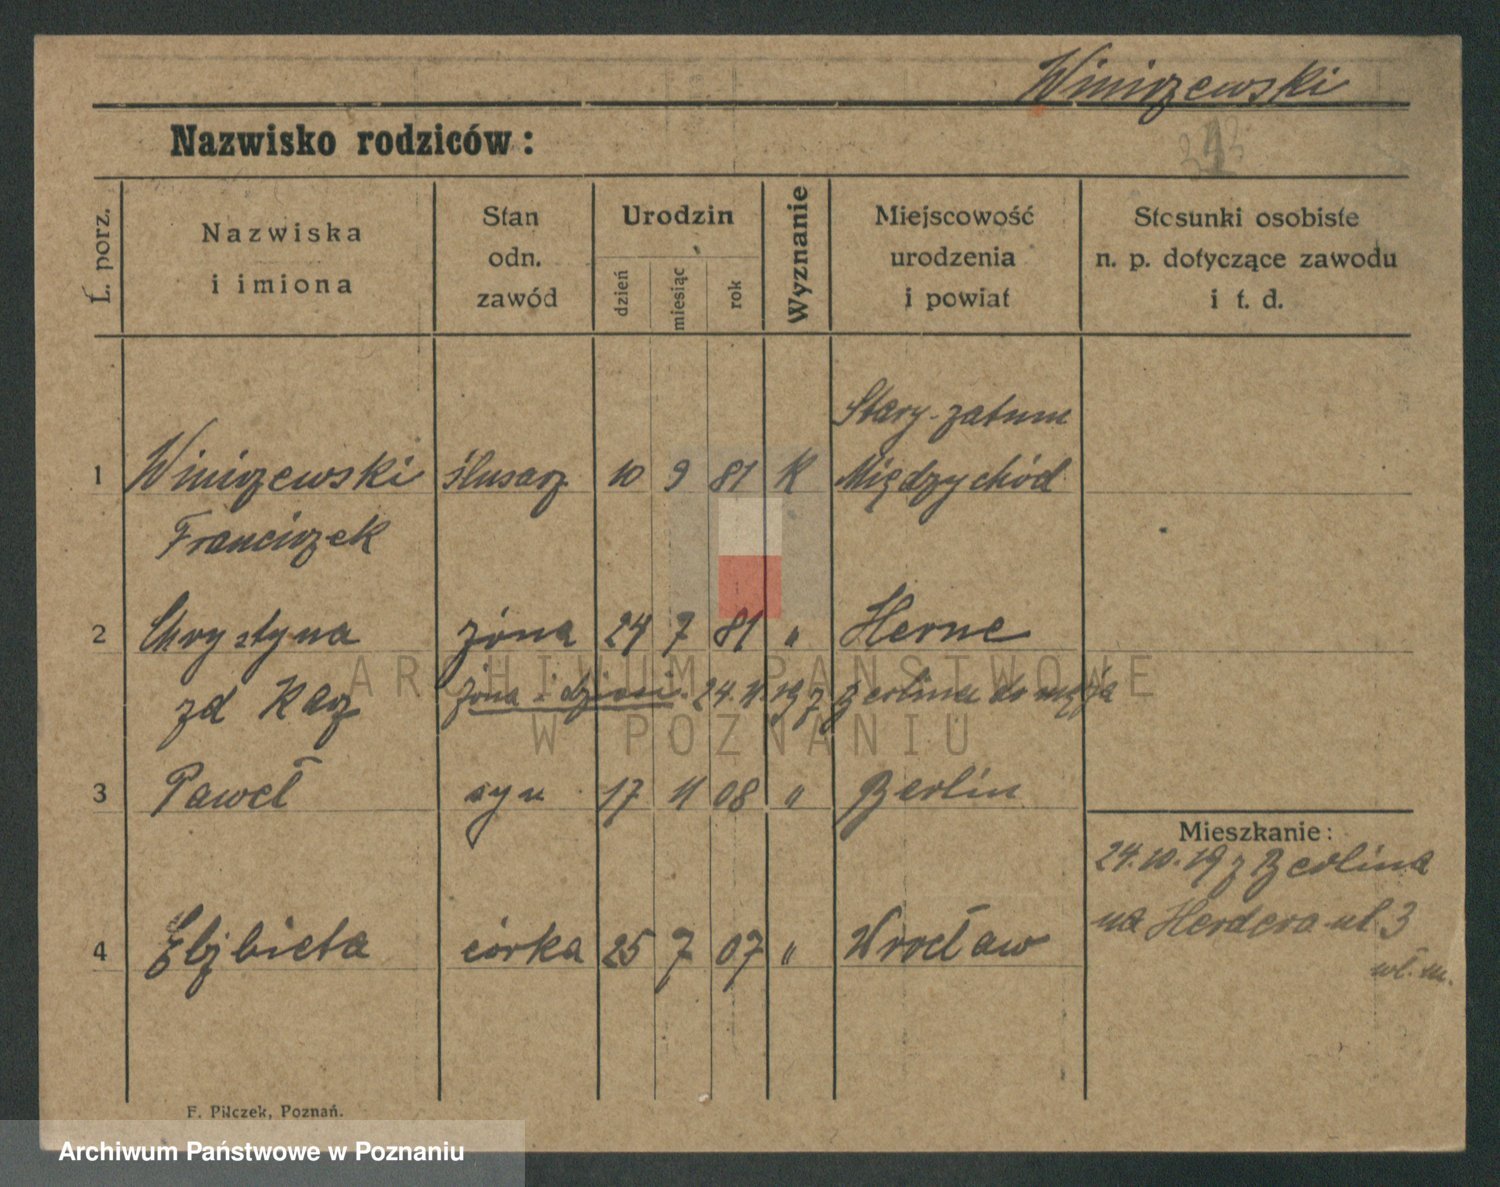 Winiszewski
Nazwisko rodziców:
L. porz.
Nazwiska
i imiona
Stan
odn.
zawód
Urodzin
dzień
miesiąc
rok
Wyznanie
Miejscowość
urodzenia
i powiat
Stosunki osobiste
n. p. dotyczące zawodu
i t. d.
Stary-zatum
1 Winiszewski ślusarz 10 9 81 K Międzychód
Franciszek
2 Chrystyna żóna 24 7 81 " Herne
zd Karz żóna i dzieci 24.11.19 z Berlina do męża
3 Paweł syn 17 11 08 " Berlin
Mieszkanie:
24.10.19 z Berlina
na Herdera ul. 3
wł. m.
4 Elzbieta córka 25 7 07 " Wrocław
F. Pilczek, Poznań.
ARCHIWUM PAŃSTWOWE
W POZNANIU
Archiwum Państwowe w Poznaniu